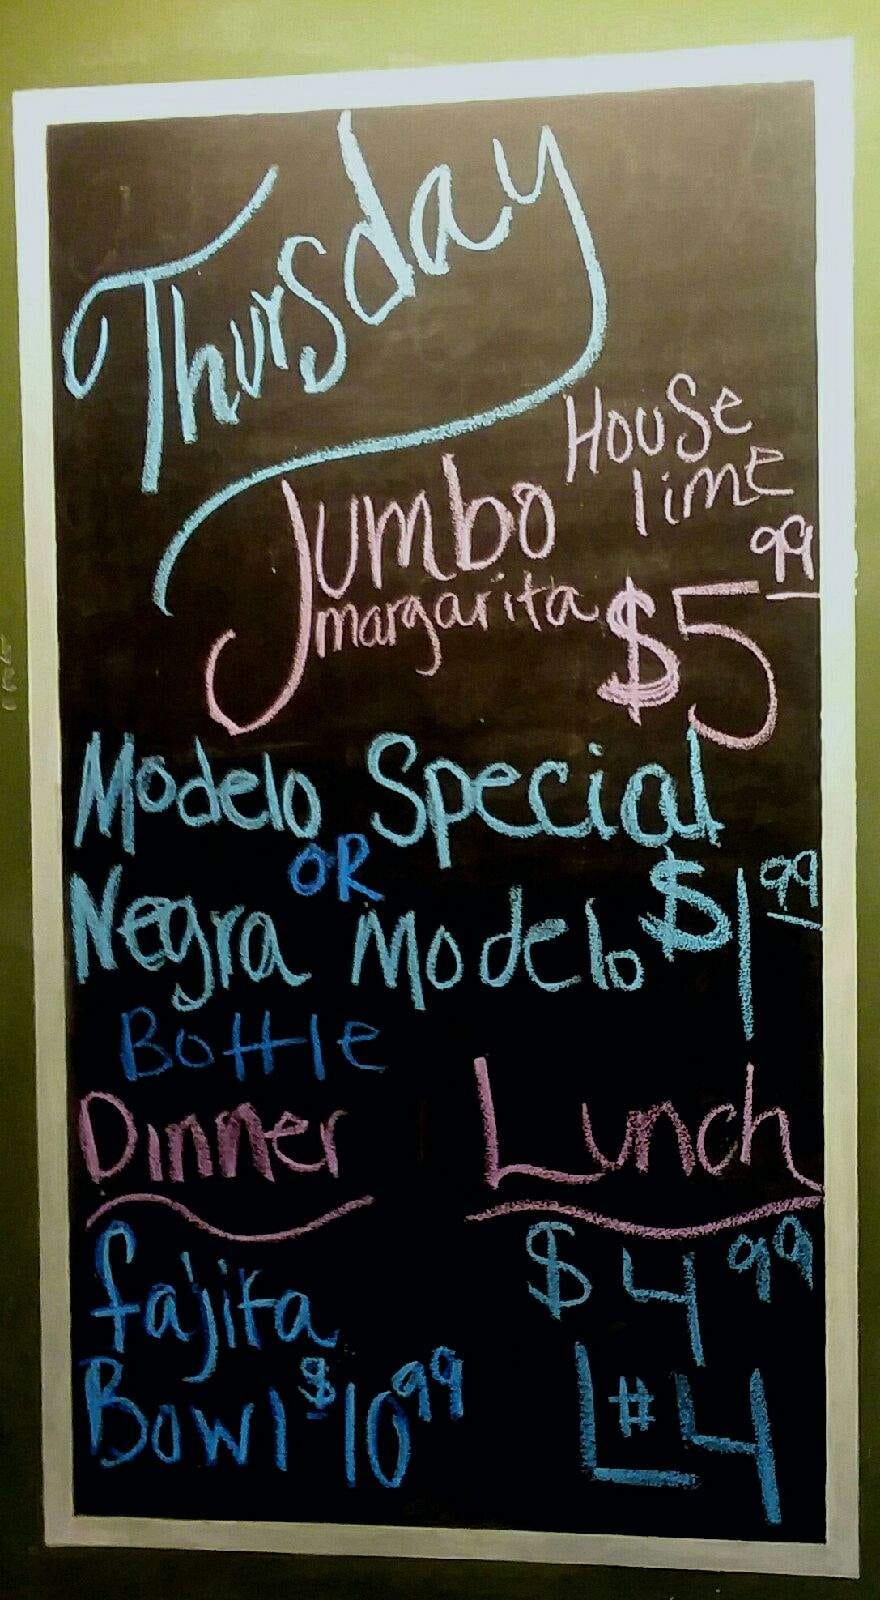 Thursday
House
lime
Jumbo
margarita $5.99
Modelo Special
OR
Negra Modelo $1.99
Bottle
Dinner Lunch
fajita $4.99
Bowl $10.99 L#4